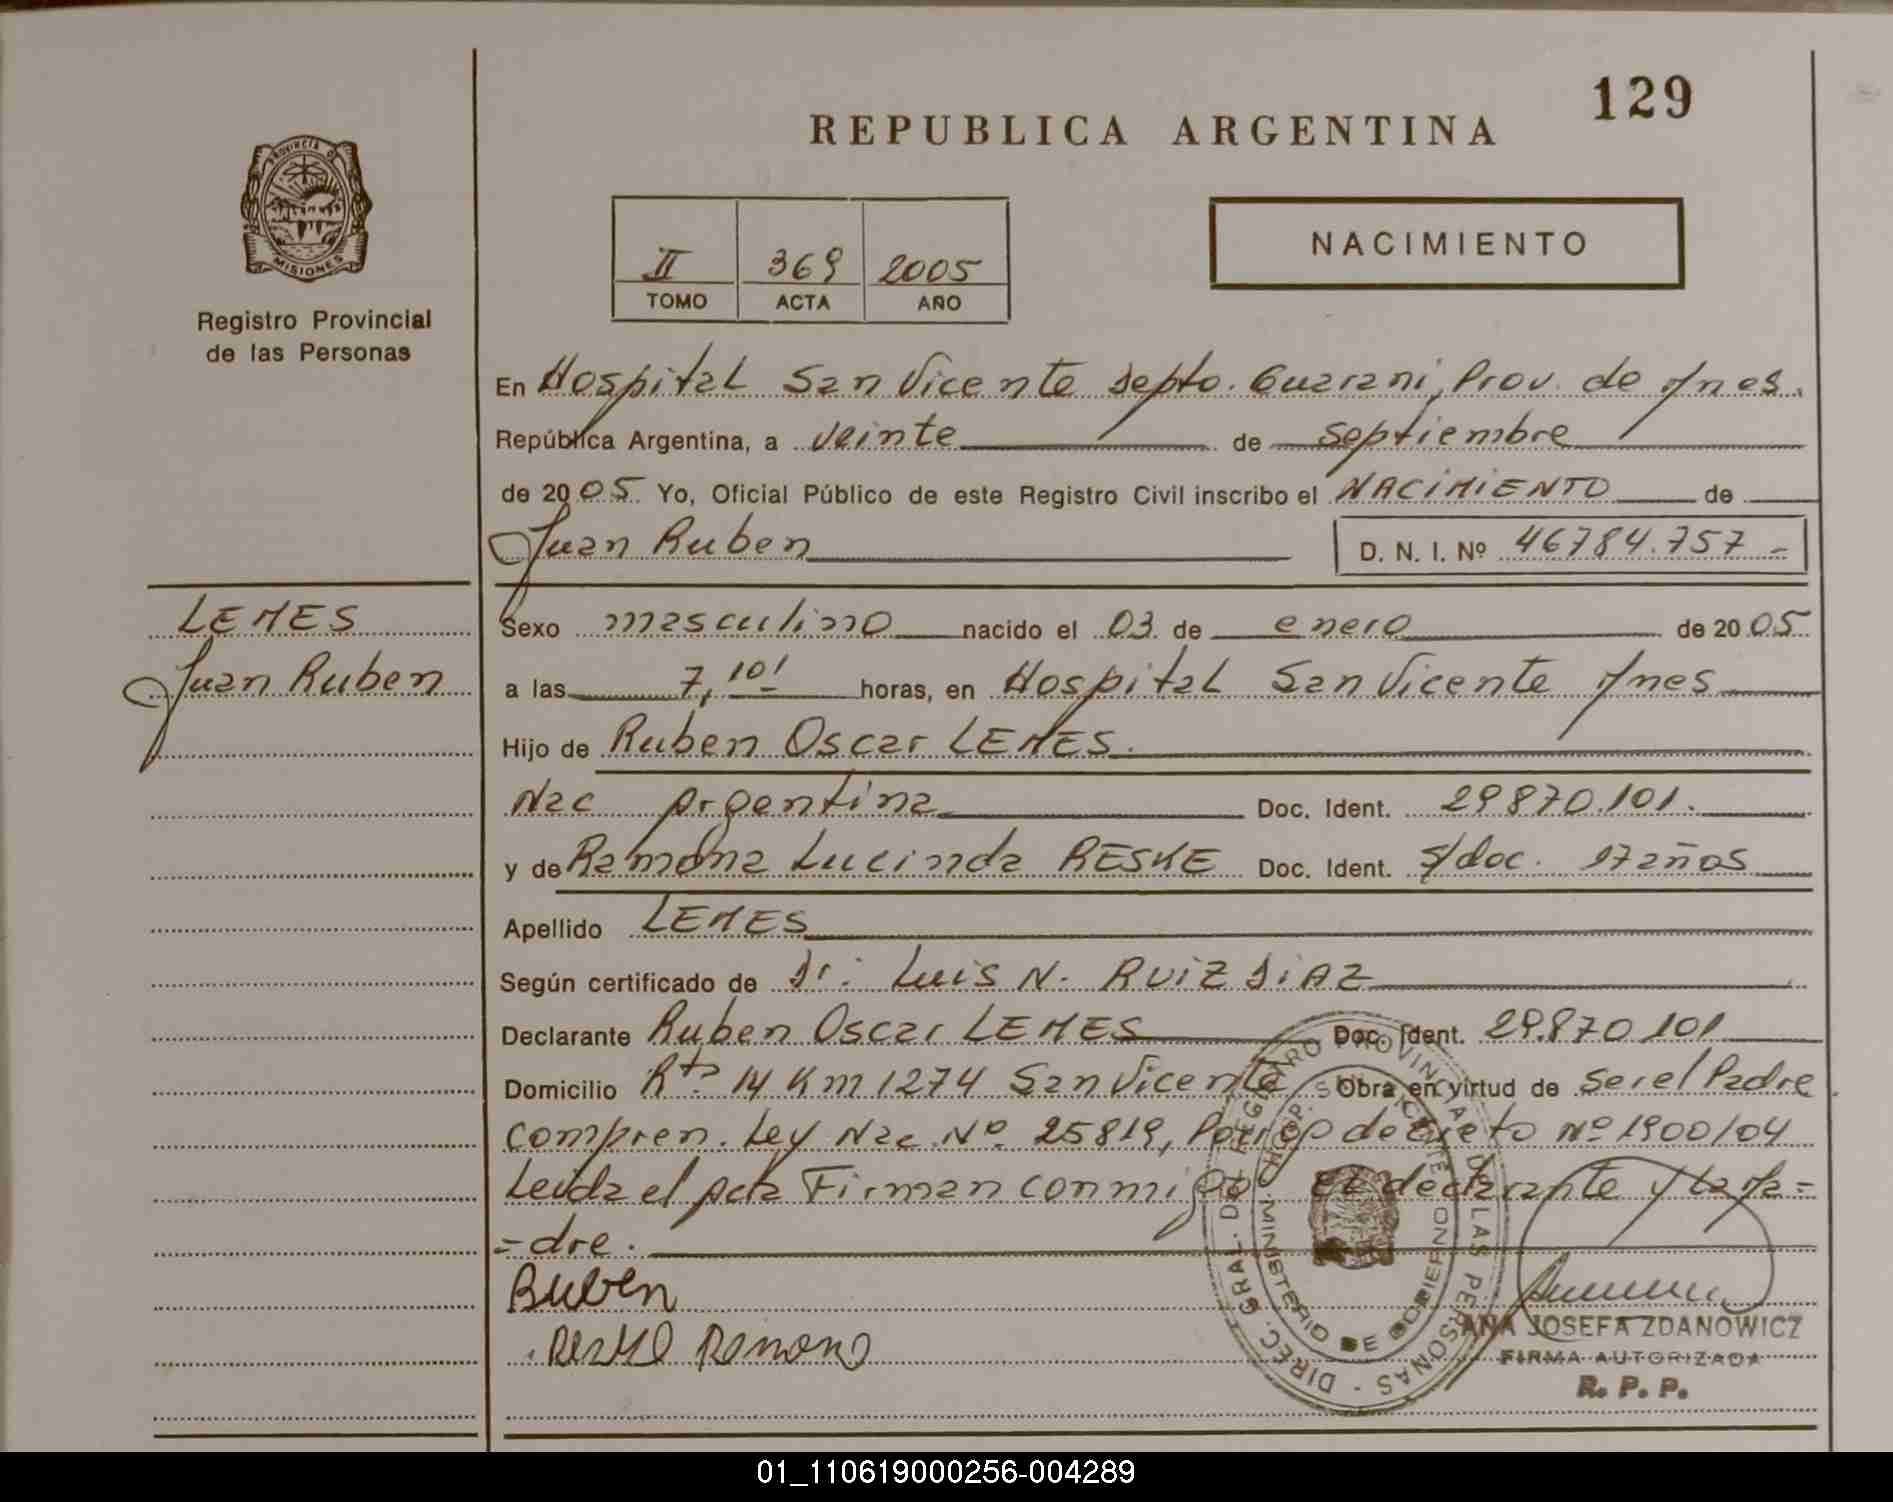 129
REPUBLICA ARGENTINA
PROVINCIA D MISIONES
Registro Provincial
de las Personas
II 369 2005
TOMO ACTA AÑO
NACIMIENTO
En Hospital San Vicente depto. Guarani, Prov. de Mnes.
República Argentina, a veinte de septiembre
de 2005 Yo, Oficial Público de este Registro Civil inscribo el NACIMIENTO de
Juan Ruben D. N. I. Nº 46784.757-
LEMES
Juan Ruben
Sexo masculino nacido el 03 de enero de 2005
a las 7,10' horas, en Hospital San Vicente Mnes
Hijo de Ruben Oscar LEMES.
Nac Argentina Doc. Ident. 29870.101.
y de Ramona Lucinda RESKE Doc. Ident. s/doc. 17 años
Apellido LEMES
Según certificado de Dr: Luis N. RUIZ DIAZ
Declarante Ruben Oscar LEMES Doc. Ident. 29.870.101
Domicilio Rta 14 Km 1274 San Vicente Obra en virtud de ser el Padre
compren. Ley Nac. Nº 25819, decreto Nº 1900/04
Leida el acta Firman conmigo el declarante y la Ma=
=dre.
Ruben
Reske Ramona
DIREC. GRAL. DEL REGISTRO PROVINCIAL DE LAS PERSONAS -
MINISTERIO DE GOBIERNO
HOSP. SAN VICENTE
ANA JOSEFA ZDANOWICZ
FIRMA AUTORIZADA
R. P. P.
01_110619000256-004289